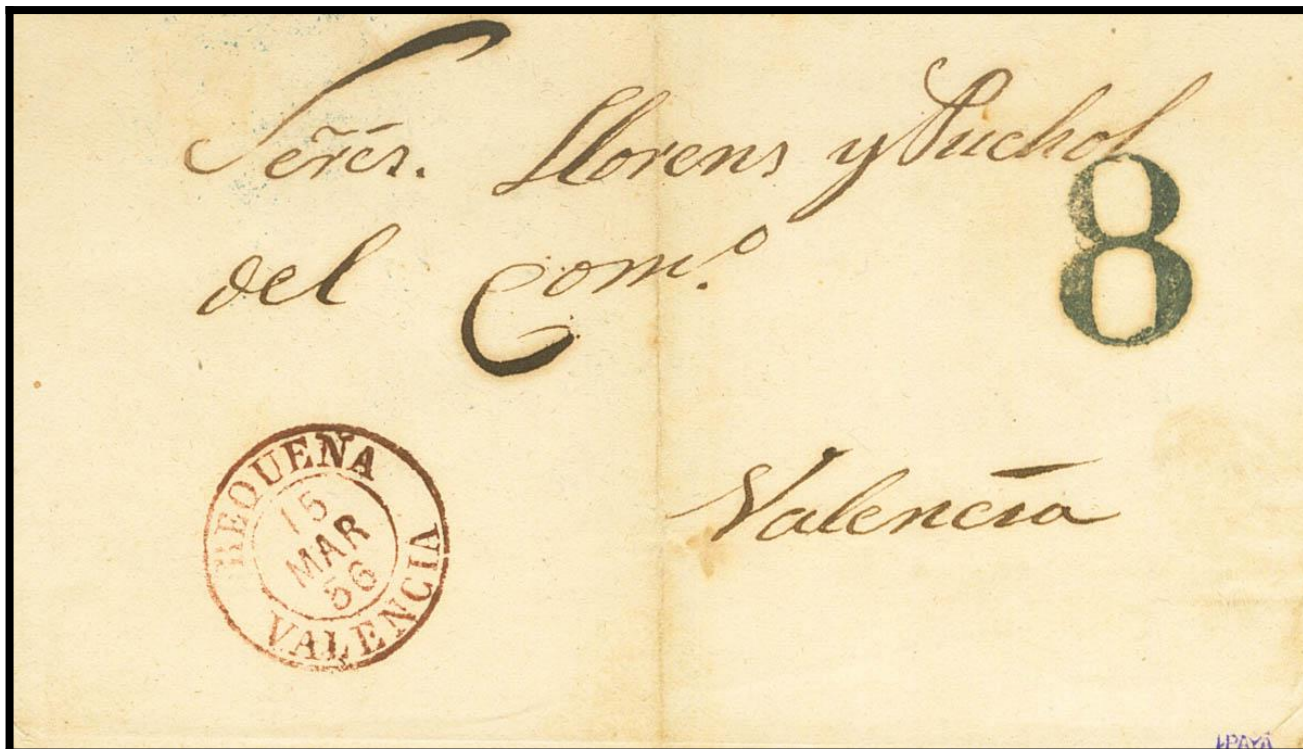 Señres. Llorens y Puchol
8
del Com.º
Valencia
REQUENA
15
MAR
56
VALENCIA